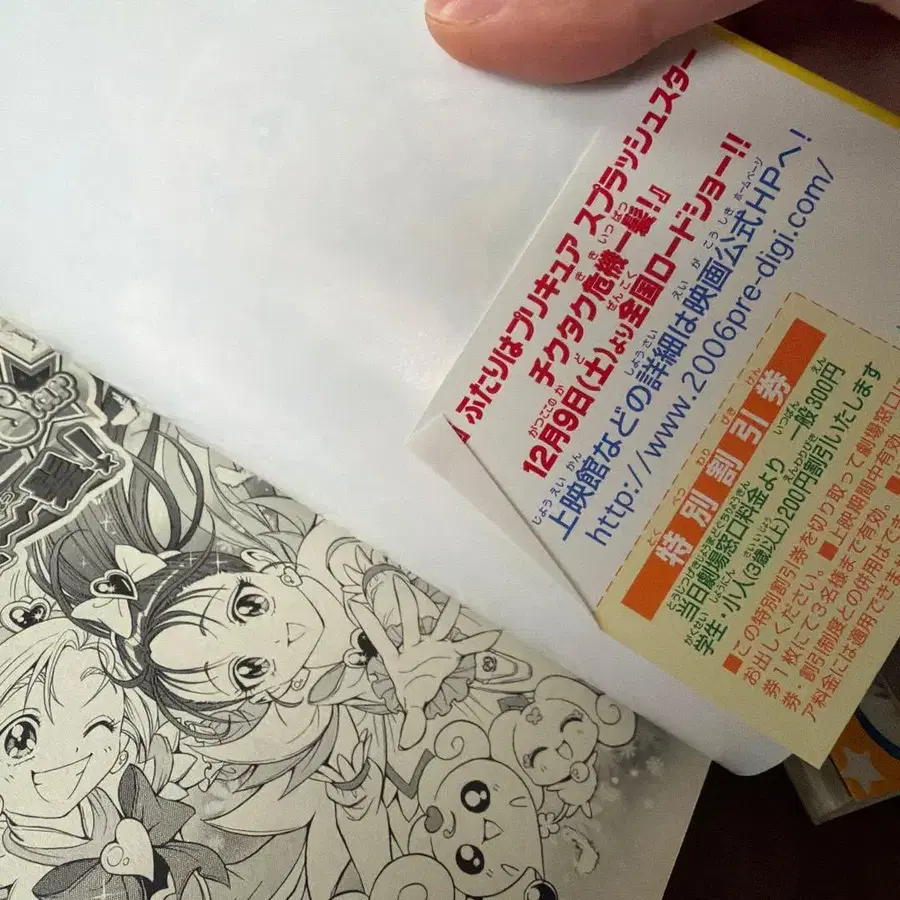 ふたりはプリキュア スプラッシュスター
チクタク危機一髪!』
12月9日(土)より全国ロードショー!!
上映館などの詳細は映画公式HPへ!
http://www.2006pre-digi.com/
特別割引券
当日劇場窓口料金より 一般300円
学生・小人(3歳以上)200円割引いたします
■この特別割引券を切り取って劇場窓口に
お出しください。■上映期間中有効
券1枚にて3名様まで有効。
券・割引制度との併用はでき
ア料金には適用できま
Star